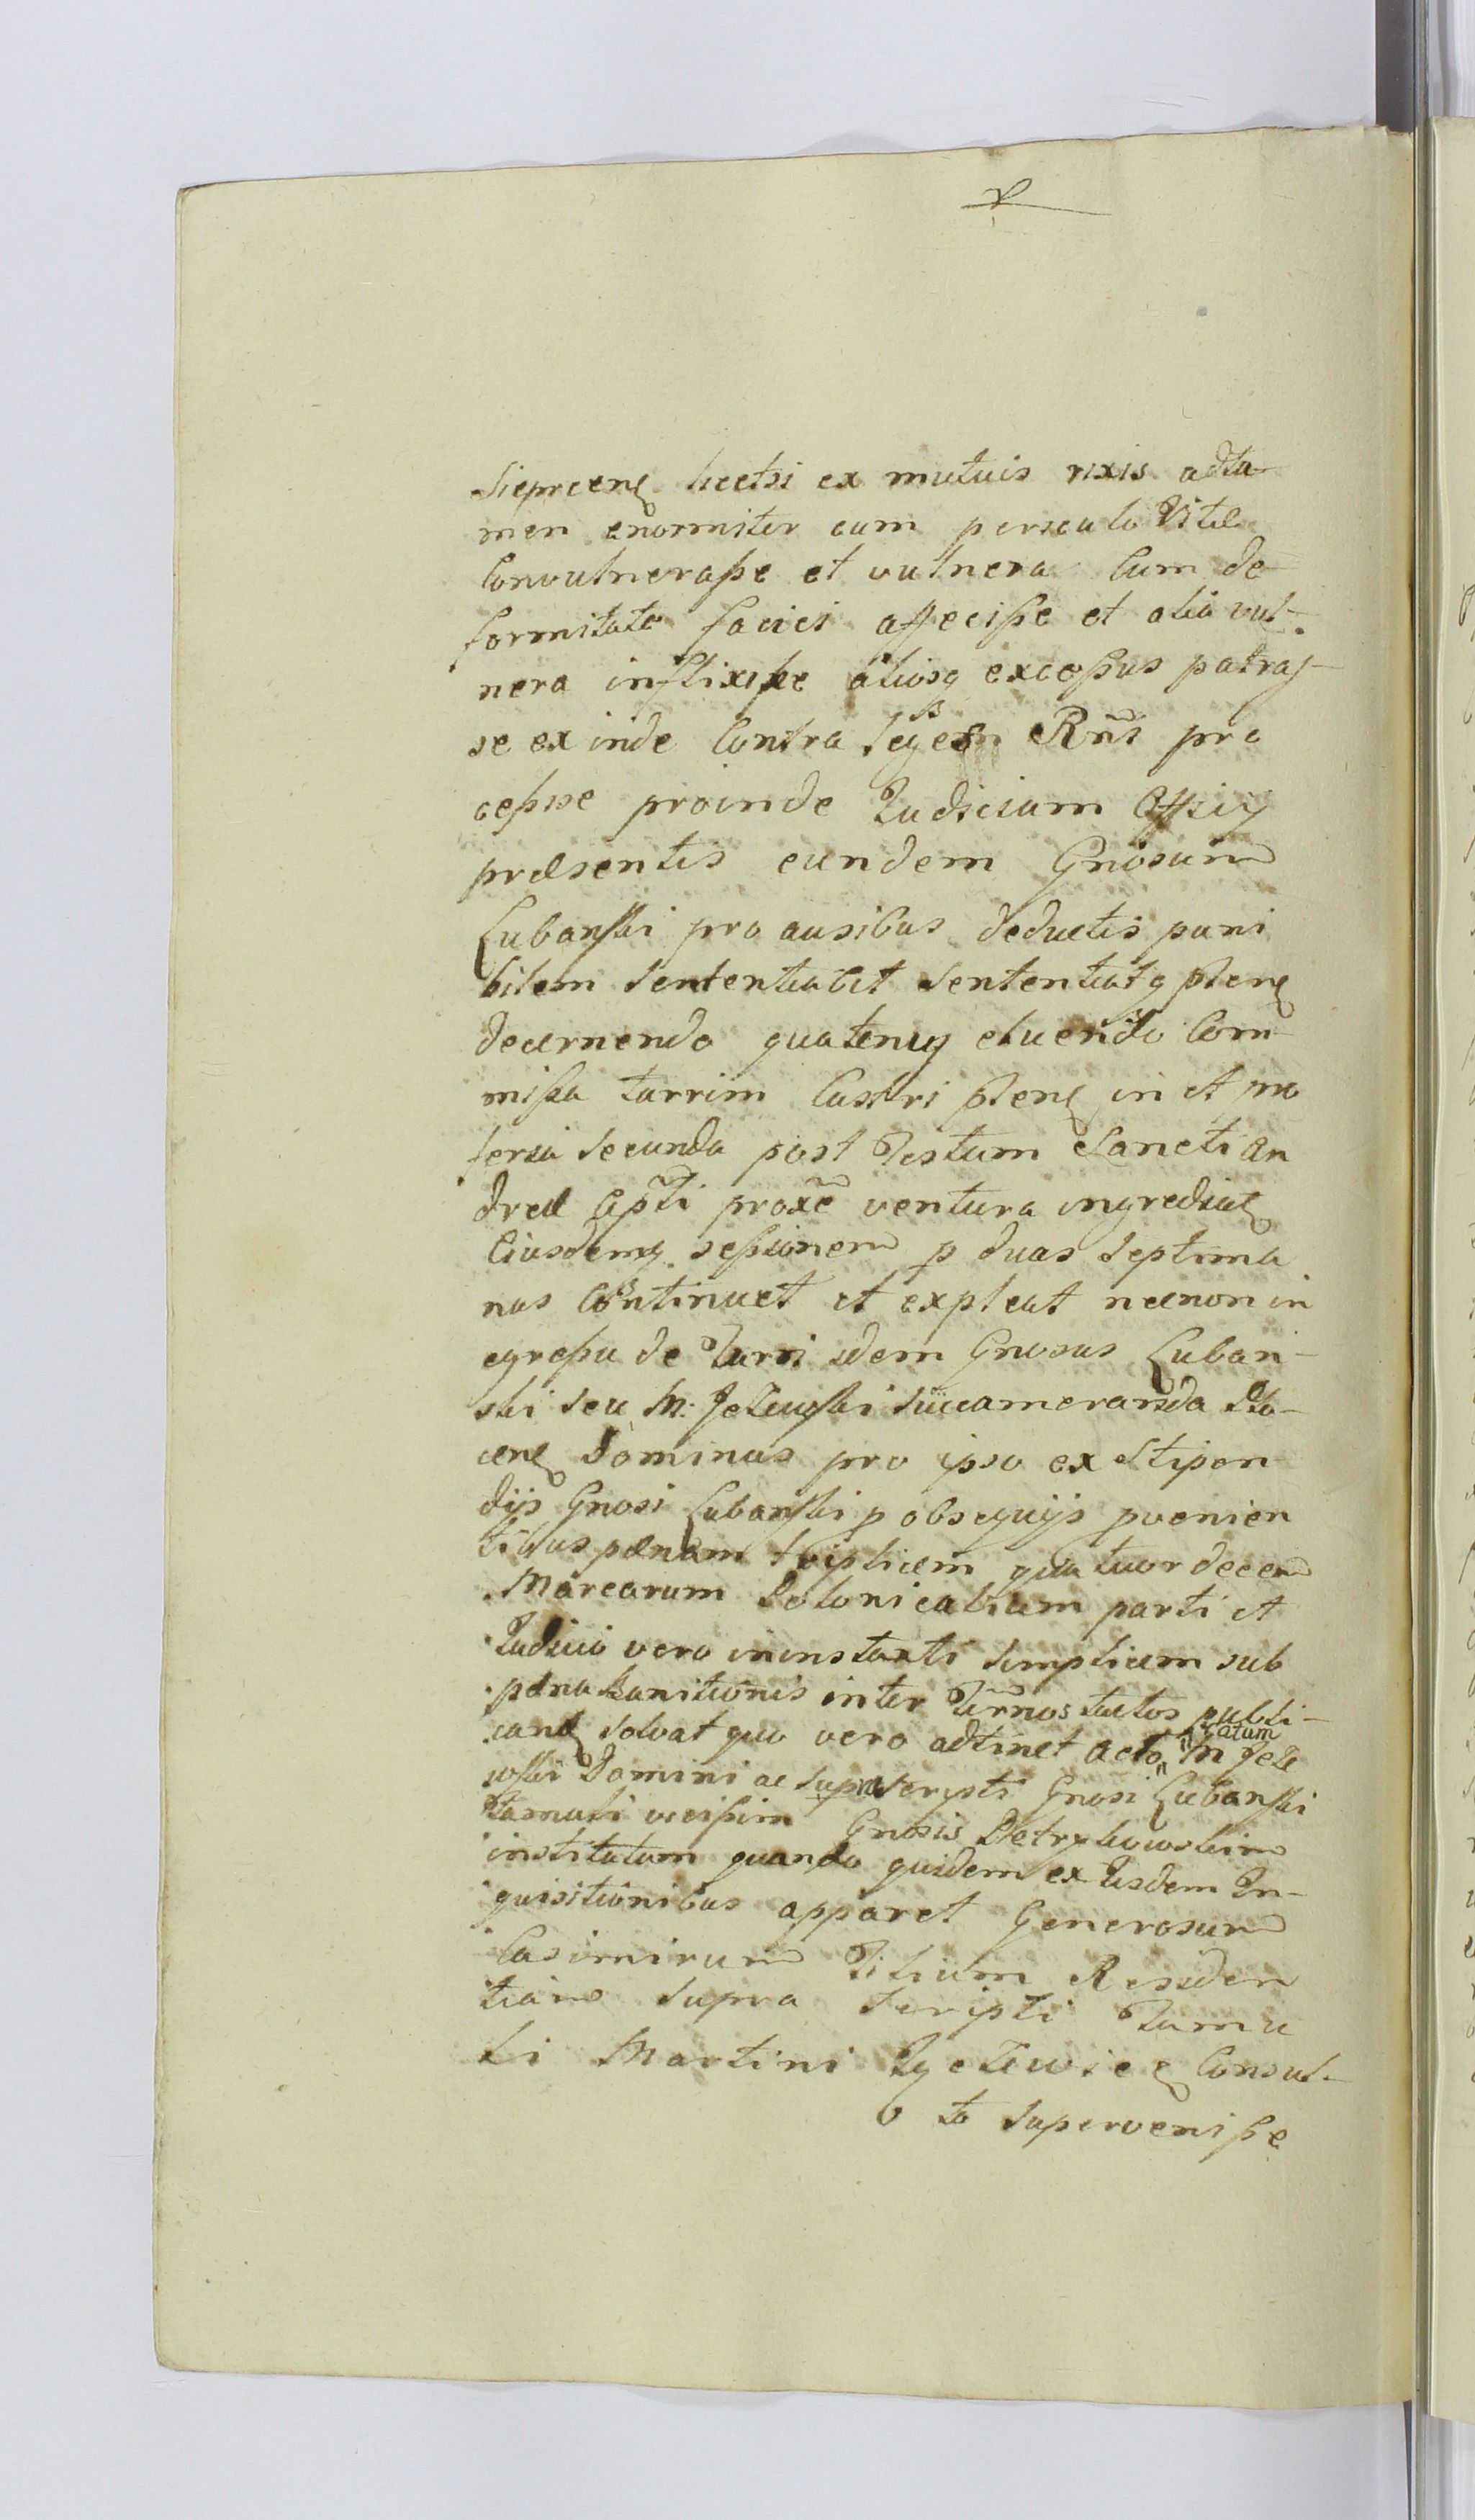 Sieprcens licetsi ex mutuis rixis adta
men enormiter cum periculo Vitæ
Convulnerasse et vulnera Cum de
formitate faciei affecisse et alia vul-
nera inflixisse aliosq excessus patras-
se ex inde Contra leges Rñi pro
cessisse proinde Judicium Officij
præsentis eundem Gnosum
Lubanski pro ausibus deductis puni
bilem sententiavit sententiatq ptens
decernendo quatenus eluendo Com
missa turrim Castri ptens in et pro
feria secunda post Festum Sancti An
dreæ Apti proxe ventura ingrediat
Eiusdemq sessionem p duas septima
nas Continuet et expleat necnon in
egressu de Turri idem Gnosus Luban-
ski seu M: Jezewski Succamerarida Plo-
cens Dominus pro ipso ex Stipen
dijs Gnosi Lubanski p obsequijs pvenien
tibus pænam triplicem quatuordecem
Marcarum Polonicalium parti et
Judicio vero in instanti simplicem sub
pæna banitionis inter Ternos tactos publi-
cand solvat quo vero adtinet actoratum M Jeze
wski Domini ac suprascripti Gnosi Lubanski
famuli vicissim Gnosis Petrykowskim
institutum quando quidem ex Iisdem In-
quisitionibus apparet Generosum
Casimirum Filium Residen
tiam supra scripti Famu
li Martini Jezewie Consul-
to supervenisse